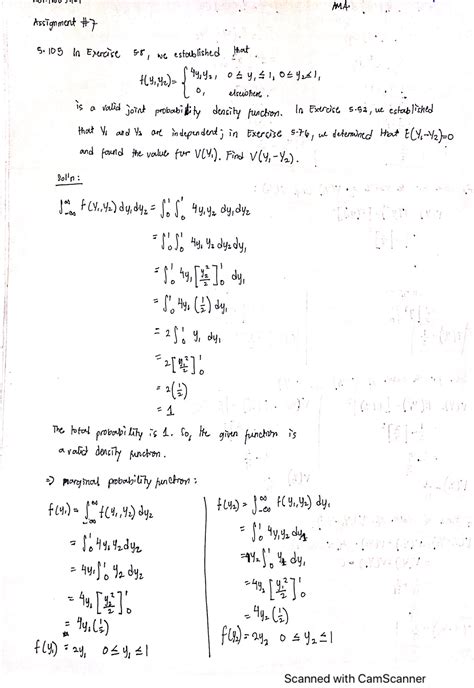 Assignment #7
5.103 In Exercise 5.8, we established that
f(y₁,y₂) = { 4y₁y₂, 0 ≤ y₁ ≤ 1, 0 ≤ y₂ ≤ 1,
0, elsewhere.
is a valid joint probability density function. In Exercise 5.52, we established
that Y₁ and Y₂ are independent; in Exercise 5.76, we determined that E(Y₁-Y₂)=0
and found the value for V(Y₁). Find V(Y₁-Y₂).
Sol'n:
∫∫_{-∞}^{∞} f(y₁,y₂) dy₁dy₂ = ∫₀¹∫₀¹ 4y₁y₂ dy₁dy₂
= ∫₀¹∫₀¹ 4y₁ y₂ dy₂dy₁
= ∫₀¹ 4y₁ [y₂²/2]₀¹ dy₁
= ∫₀¹ 4y₁ (1/2) dy₁
= 2 ∫₀¹ y₁ dy₁
= 2 [y₁²/2]₀¹
= 2(1/2)
= 1
The total probability is 1. So, the given function is
a valid density function.
=) marginal probability function:
f(y₁) = ∫_{-∞}^{∞} f(y₁,y₂) dy₂
= ∫₀¹ 4y₁y₂ dy₂
= 4y₁ ∫₀¹ y₂ dy₂
= 4y₁ [y₂²/2]₀¹
= 4y₁(1/2)
f(y₁) = 2y₁ 0 ≤ y₁ ≤ 1
f(y₂) = ∫_{-∞}^{∞} f(y₁,y₂) dy₁
= ∫₀¹ 4y₁y₂ dy₁
= 4y₂ ∫₀¹ y₁ dy₁
= 4y₂ [y₁²/2]₀¹
= 4y₂(1/2)
f(y₂) = 2y₂ 0 ≤ y₂ ≤ 1
Scanned with CamScanner